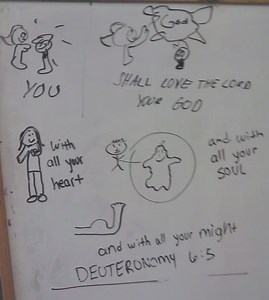 God
YOU
SHALL LOVE THE LORD
YOUR GOD
with
all your
heart
and with
all your
SOUL
and with all your might
DEUTERONOMY 6:5